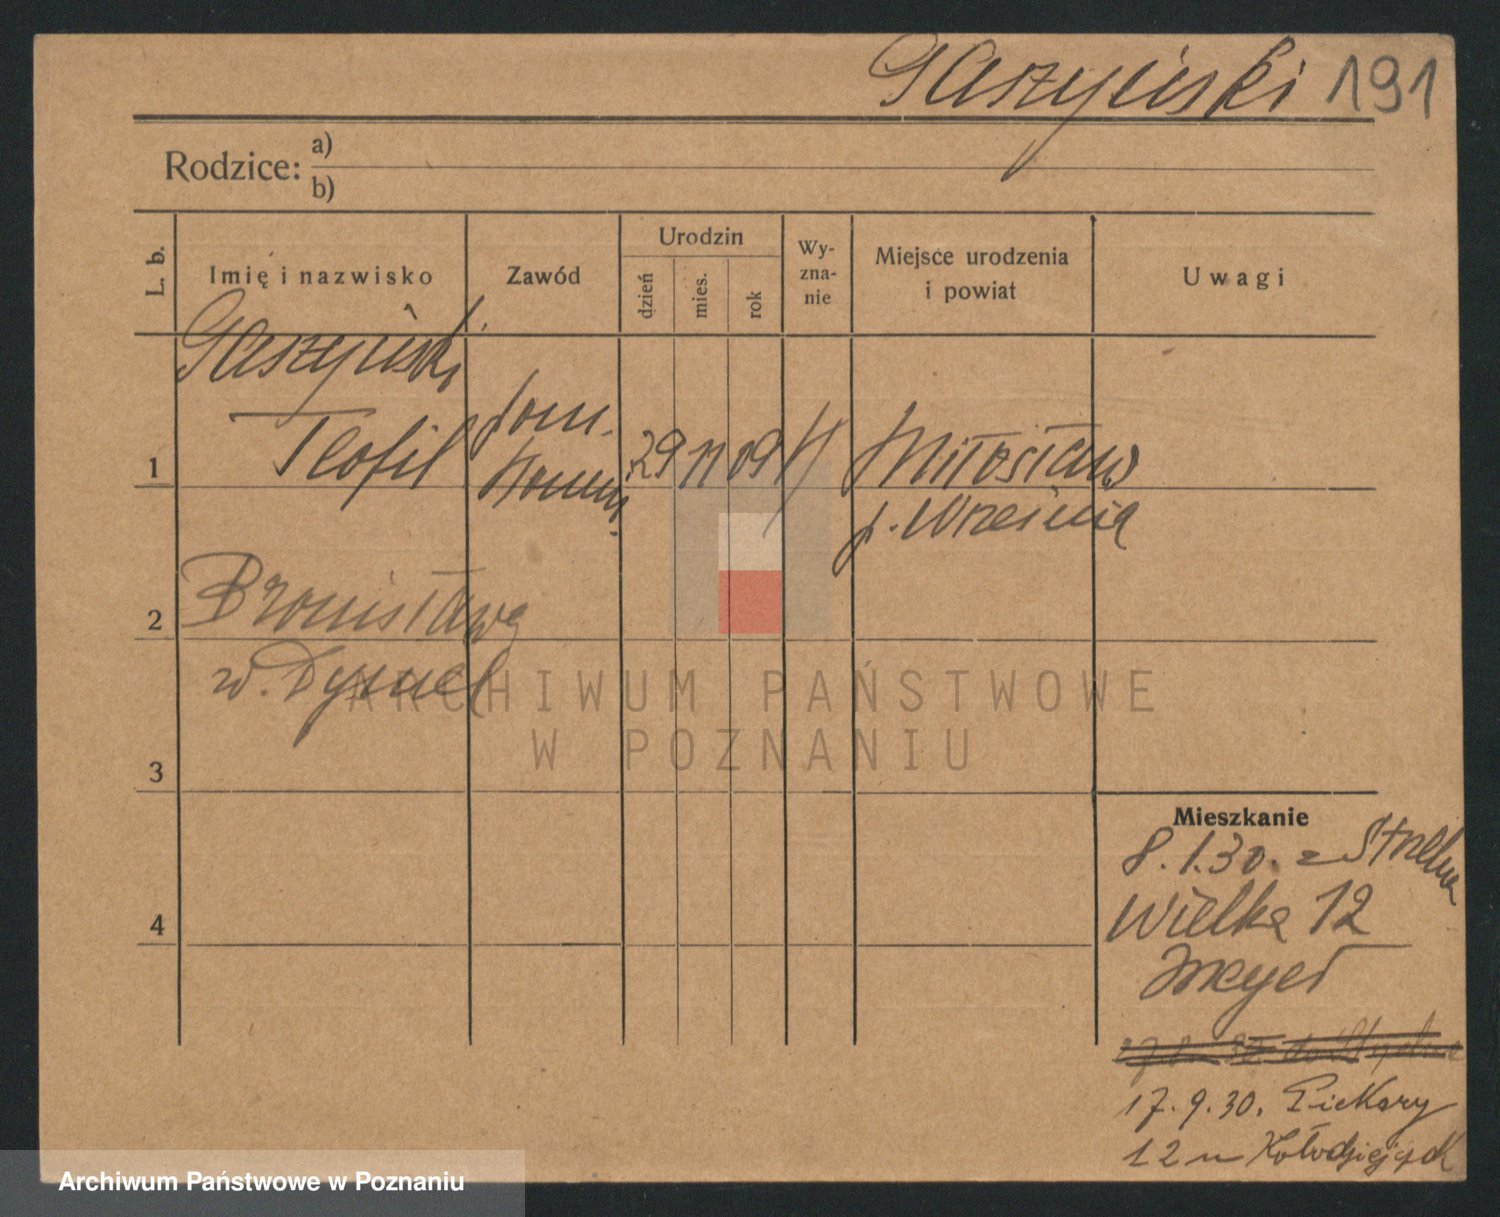 Gaszyński 191
Rodzice: a)
b)
L. b.
Imię i nazwisko
Zawód
Urodzin
dzień
mies.
rok
Wy-
zna-
nie
Miejsce urodzenia
i powiat
Uwagi
Gaszyński
1 Teofil
pom.
29 11 09
Miłosław
p. Września
2 Bronisława
3
4
Mieszkanie
8.1.30. z Strzelna
Wielka 12
Meyer
17.9.30. Piekary
12 u Kołodziejczak
ARCHIWUM PAŃSTWOWE
W POZNANIU
Archiwum Państwowe w Poznaniu